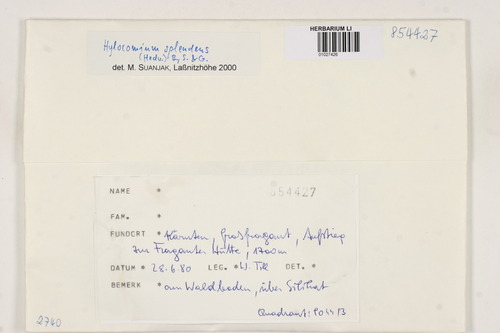 Hylocomium splendens
(Hedw.) B., S. & G.
det. M. SUANJAK, Laßnitzhöhe 2000
HERBARIUM LI
01027426
854427
NAME *
854427
FAM. *
FUNDORT * Kärnten, Großfragant, Aufstieg
zur Fraganter Hütte, 1700m
DATUM * 28.6.80 LEG. * W. Till DET. *
BEMERK * am Waldboden, über Silikat
Quadrant:
2740